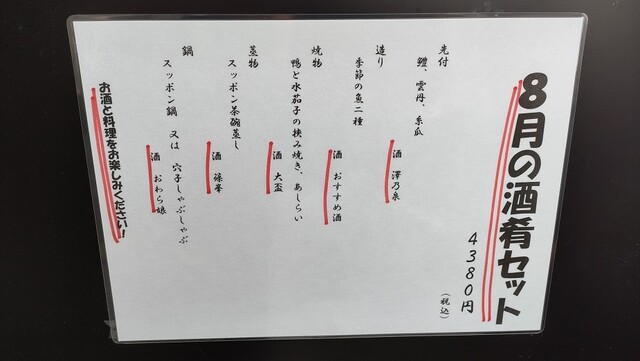 8月の酒肴セット
4380円
(税込)
先付
鱧、雲丹、糸瓜
酒 澤乃泉
造り
季節の魚二種
酒 おすすめ酒
焼物
鴨と水茄子の挟み焼き、あしらい
酒 大盃
蒸物
スッポン茶碗蒸し
酒 篠峯
鍋
スッポン鍋 又は 穴子しゃぶしゃぶ
酒 おわら娘
お酒と料理をお楽しみください!